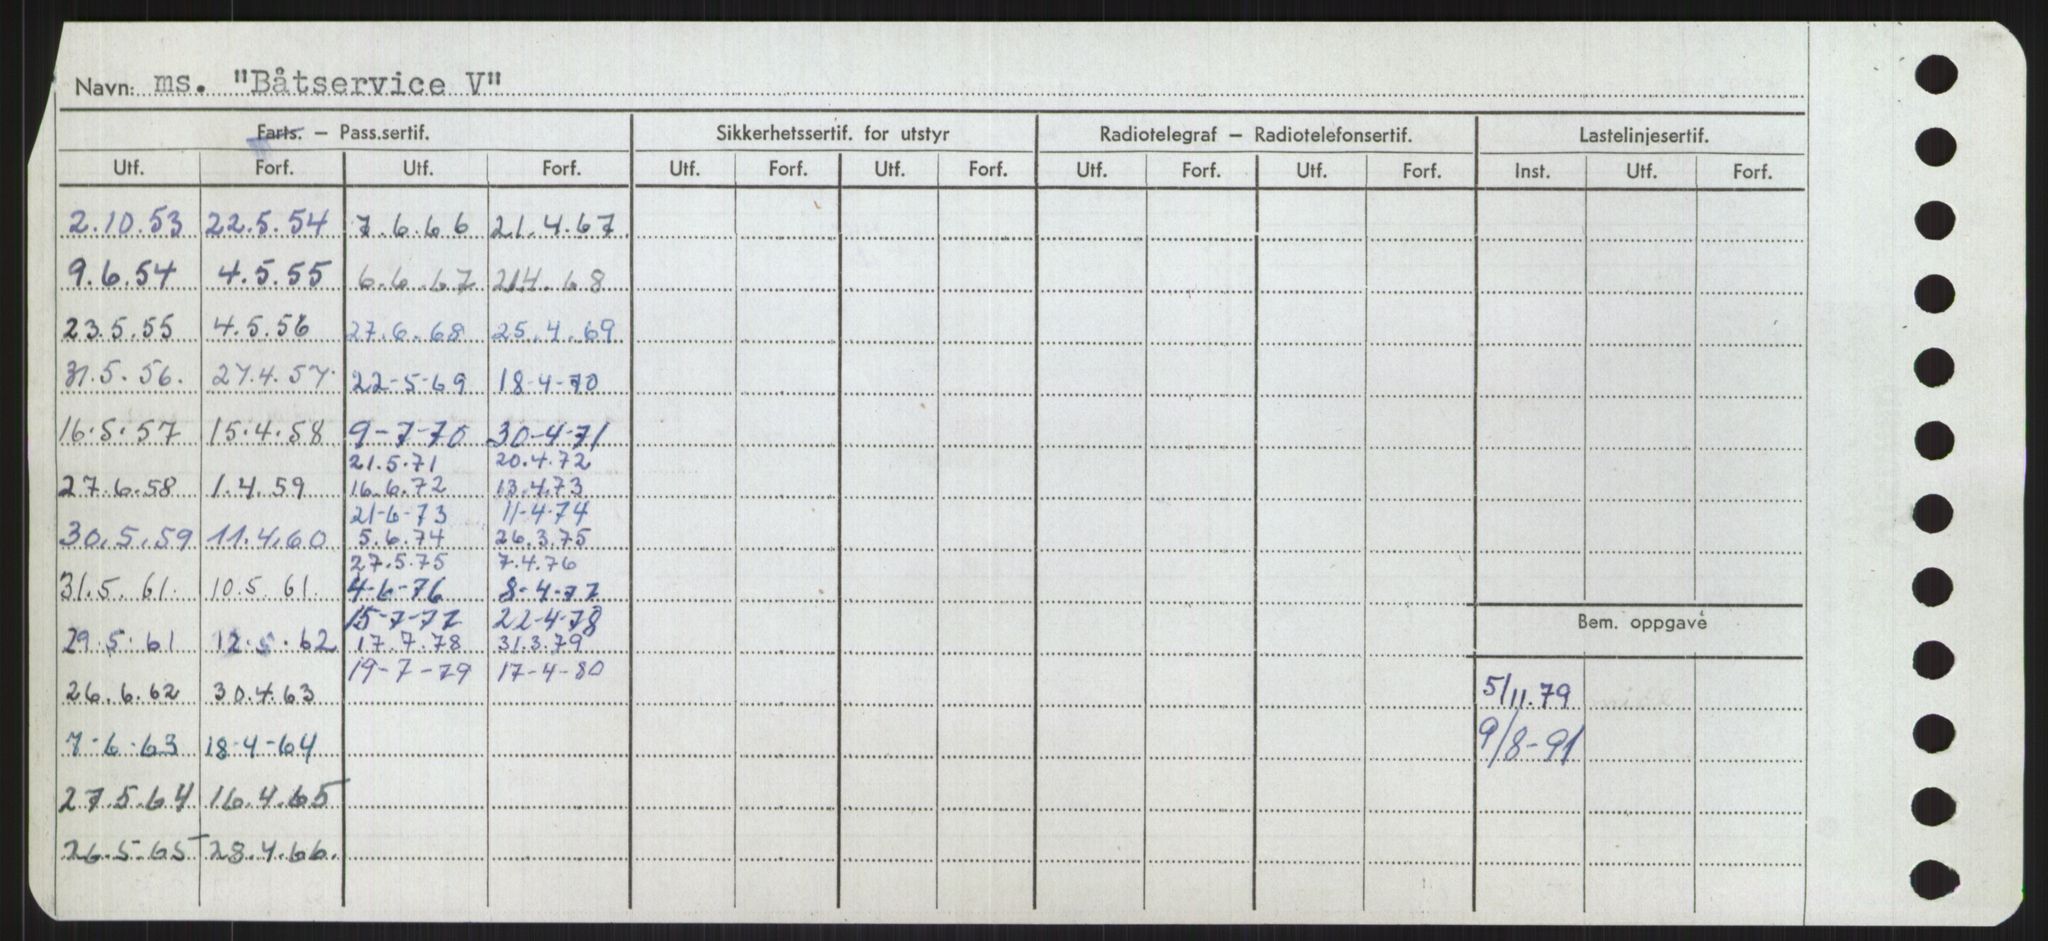 Navn: ms. "Båtservice V"
Farts. – Pass.sertif. Sikkerhetssertif. for utstyr Radiotelegraf – Radiotelefonsertif. Lastelinjesertif.
Utf. Forf. Utf. Forf. Utf. Forf. Utf. Forf. Utf. Forf. Utf. Forf. Inst. Utf. Forf.
2.10.53 22.5.54 7.6.66 21.4.67.
9.6.54 4.5.55 6.6.67 21.4.68
23.5.55 4.5.56 27.6.68 25.4.69
31.5.56. 27.4.57. 22-5-69 18-4-70
16.5.57 15.4.58 9-7-70 30-4-71
21.5.71 20.4.72
27.6.58 1.4.59 16.6.72 13.4.73
21-6-73 11-4-74
30.5.59 11.4.60 5.6.74 26.3.75
27.5.75 7.4.76
31.5.61. 10.5.61. 4-6-76 8-4-77
15-7-77 22-4-78
Bem. oppgavè
29.5.61 12.5.62 17.7.78 31.3.79
19-7-79 17-4-80
26.6.62 30.4.63 5/11.79
7-6-63 18-4-64 9/8-91
27.5.64 16.4.65
26.5.65 28.4.66.